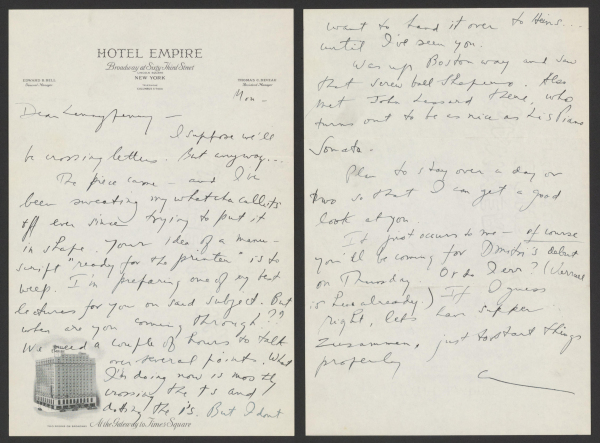 HOTEL EMPIRE
Broadway at Sixty-Third Street
LINCOLN SQUARE
NEW YORK
EDWARD B. BELL
General Manager
Mon —
Dear Lennypenny —
I suppose we'll
be crossing letters. But anyway...
The piece came — and I've
been sweating my whatchacallits
off ever since trying to put it
in shape. Your idea of a manu-
script "ready for the printer" is to
weep. I'm preparing one of my best
lectures for you on said subject. But
when are you coming through??
We need a couple of hours to talk
over several points. What
I'm doing now is mostly
crossing the ts and
dotting the i's. But I don't
At the Gateway to Times Square
want to hand it over to Heins...
until I've seen you.
Was up Boston way and saw
that screwball Shapero. Also
met John Lessard there, who
turns out to be as nice as his Piano
Sonata.
Plan to stay over a day or
two so that I can get a good
look at you.
It just occurs to me — of course
you'll be coming for Dmitri's debut
on Thursday. Or do I err? (
is here already.) If I guess
right, lets have supper
zusammen, just to start things
properly